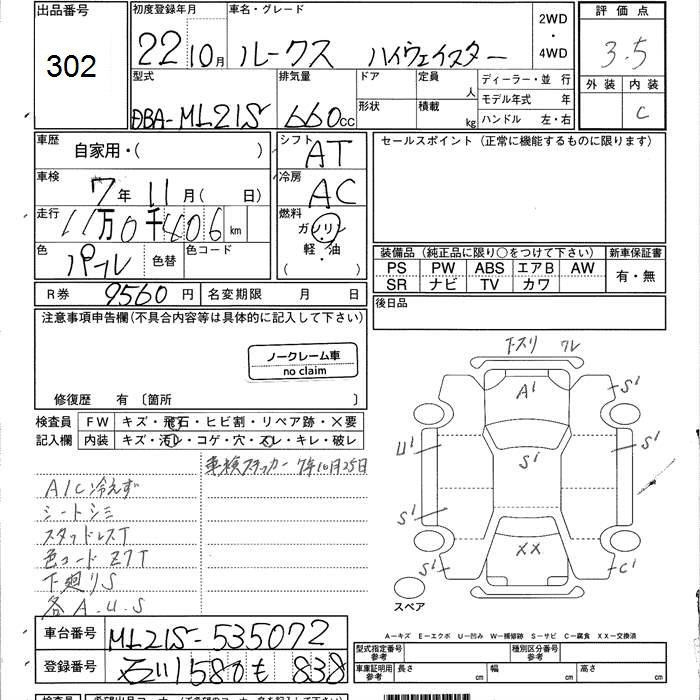 出品番号
302
初度登録年月
22 10月
車名・グレード
ルークス ハイウェイスター
2WD
・
4WD
評価点
3.5
外装 内装
C
型式
DBA-ML21S
排気量
660cc
ドア
形状
定員
人
積載
kg
ディーラー・並行
モデル年式 年
ハンドル 左・右
車歴
自家用・( )
シフト
AT
セールスポイント (正常に機能するものに限ります)
車検
7年 11月( 日)
冷房
AC
走行
11万0千406km
燃料
ガソリン
軽・油
( )
色
パール
色替
色コード
装備品 (純正品に限り○をつけて下さい)
新車保証書
PS PW ABS エアB AW
SR ナビ TV カワ
有・無
R券 9560円
名変期限 月 日
後日品
注意事項申告欄(不具合内容等は具体的に記入して下さい)
ノークレーム車
no claim
修復歴 有〔箇所 〕
検査員
記入欄
FW キズ・飛石・ヒビ割・リペア跡・×要
内装 キズ・汚レ・コゲ・穴・スレ・キレ・破レ
車検ステッカー 7年10月25日
A/C冷えず
シートシミ
スタッドレスT
色コード Z7T
下廻りS
各A.U.S
下スリ ワレ
A1
S1
U1
S1
S1
S1
XX
S1
C1
スペア
A-キズ E-エクボ U-凹み W-補修跡 S-サビ C-腐食 XX-交換済
車台番号
ML21S-535072
登録番号
石川580も838
型式指定番号
参考
種別区分番号
参考
車庫証明用
参考
長さ cm
幅 cm
高さ cm